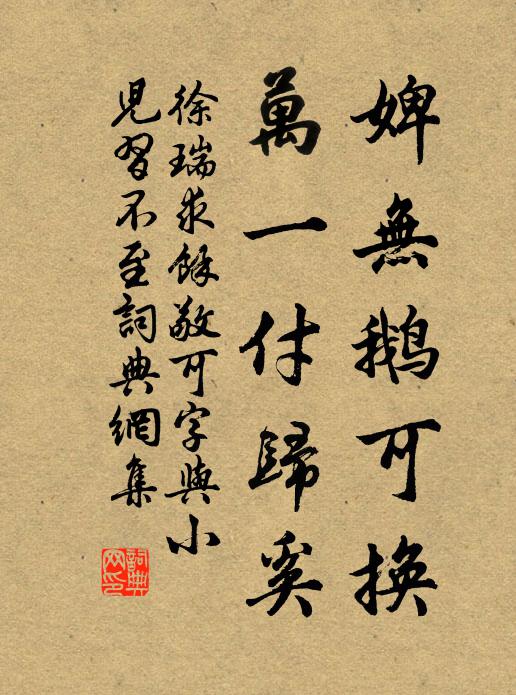 婢無鹅可換
萬一付歸奚
徐瑞求餘敬可字與小
兒習不至詞典網集
詞典
网印